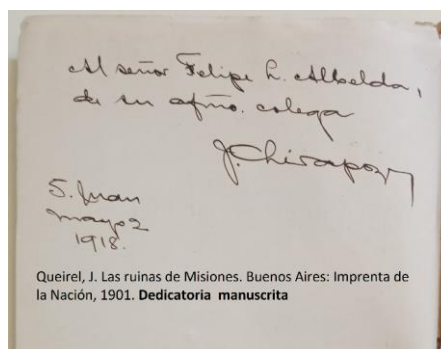 Al señor Felipe L. Albelda,
de su afmo. colega
J. Chirapozu
S. Juan
mayo 2
1918.
Queirel, J. Las ruinas de Misiones. Buenos Aires: Imprenta de
la Nación, 1901. Dedicatoria manuscrita